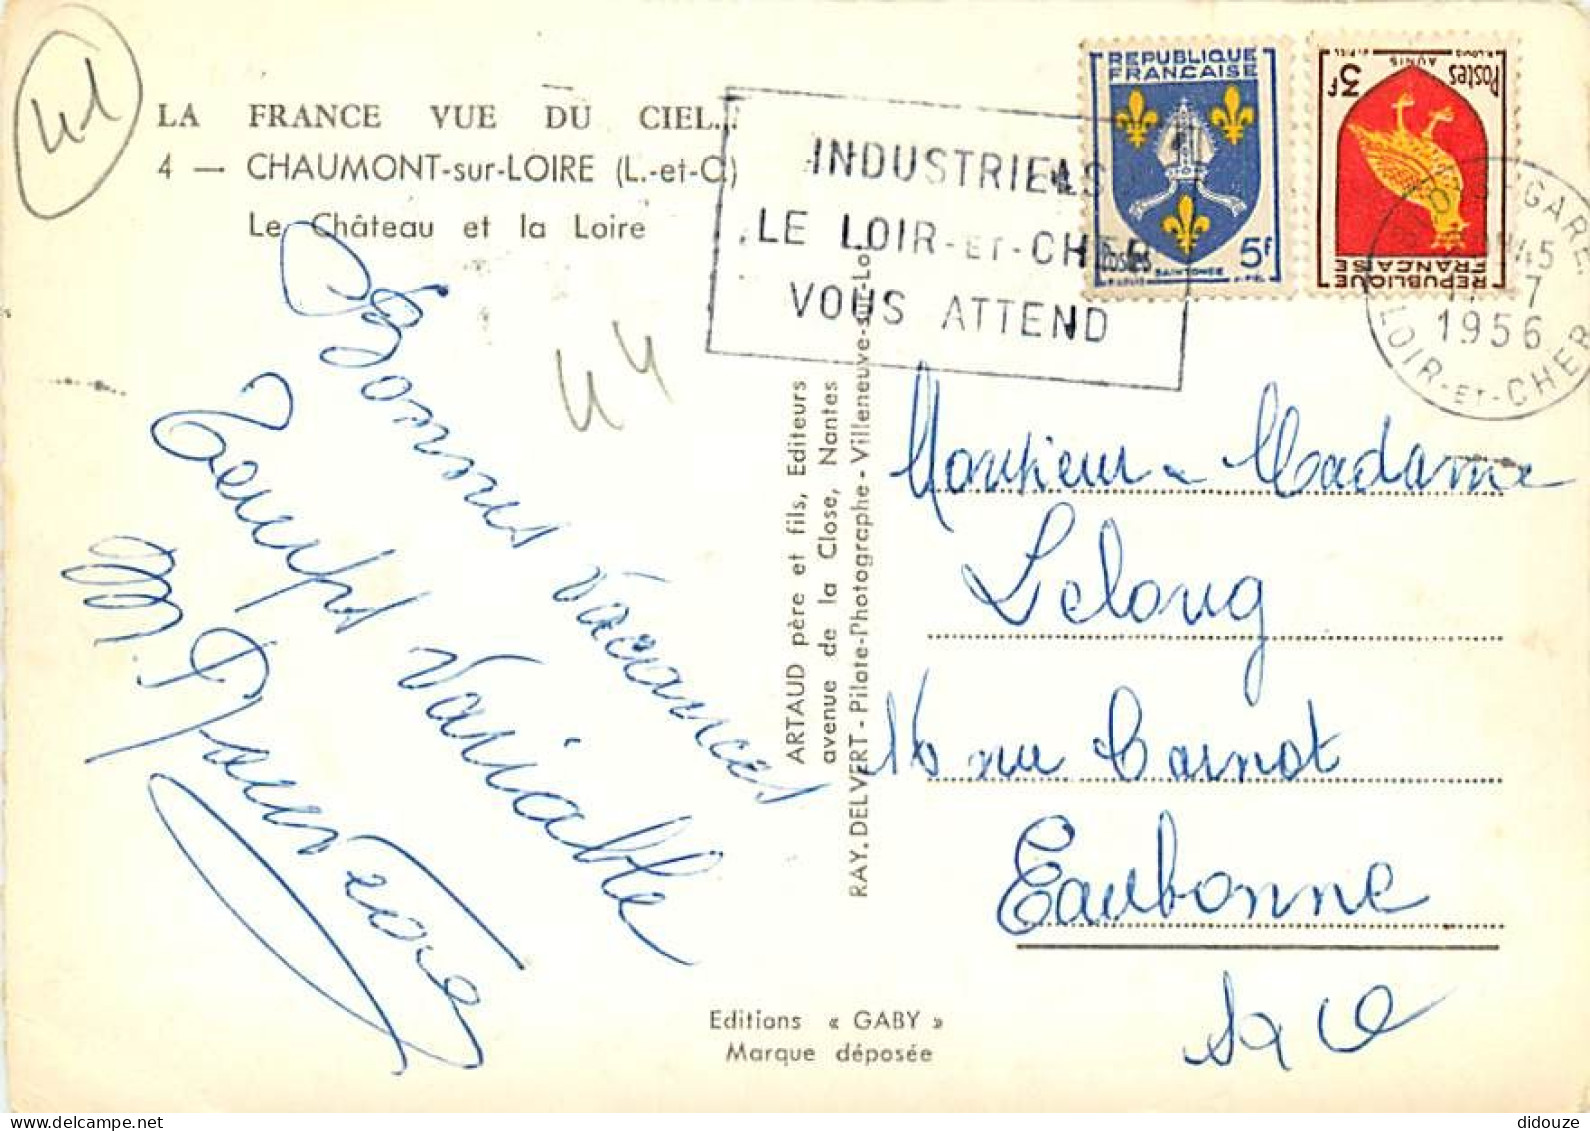 41
LA FRANCE VUE DU CIEL...
4 — CHAUMONT-sur-LOIRE (L.-et-C.)
Le Château et la Loire
INDUSTRIELS
LE LOIR-ET-CHER
VOUS ATTEND
REPUBLIQUE
FRANCAISE
POSTES
5F
SAINTONGE
REPUBLIQUE
FRANCAISE
Postes
3F
AUNIS
BLOIS GARE
45
7
1956
LOIR-ET-CHER
44
Bonnes Vacances
Temps Variable
ARTAUD père et fils, Editeurs
avenue de la Close, Nantes
RAY. DELVERT - Pilote-Photographe - Villeneuve-sur-Lot
Monsieur Madame
Lelong
16 rue Carnot
Eaubonne
S et O
Editions « GABY »
Marque déposée
didouze